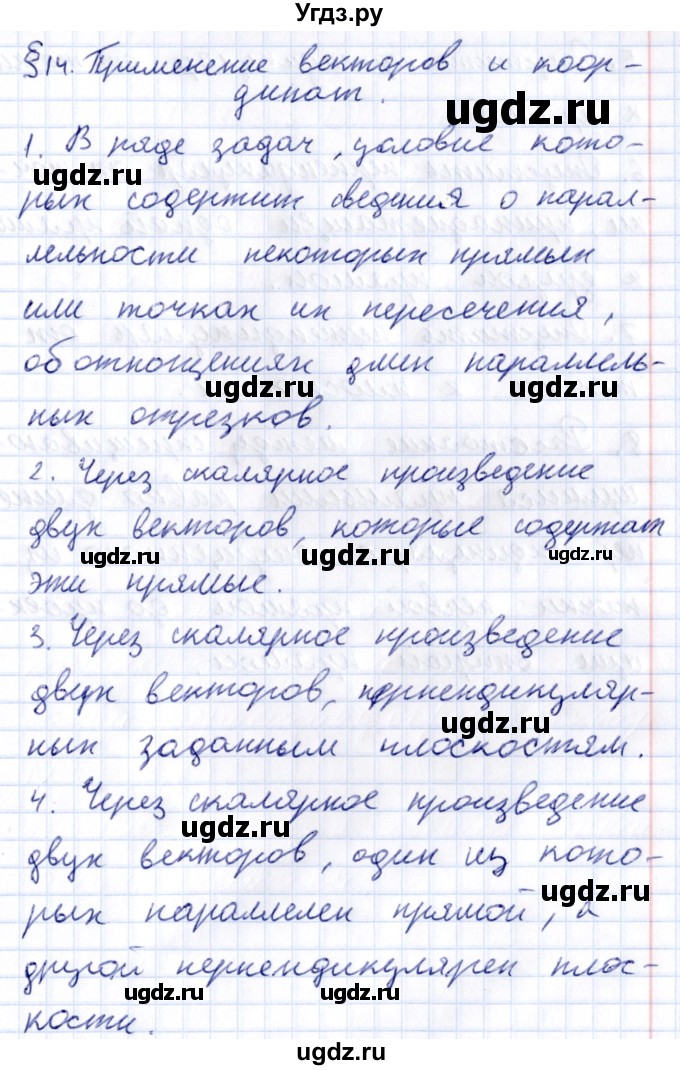 Угдз.ру
§14. Применение векторов и коор-
динат.
ugdz.ru
1. В ряде задач, условие кото-
ugdz.ru
рых содержит сведения о парал-
ugdz.ru
лельности некоторых прямых
или точках их пересечения,
об отношениях длин параллель-
ugdz.ru
ugdz.ru
ных отрезков.
2. Через скалярное произведение
двух векторов, которые содержат
ugdz.ru
ugdz.ru
ugdz.ru
эти прямые.
3. Через скалярное произведение
двух векторов, перпендикуляр-
ugdz.ru
ных заданным плоскостям.
4. Через скалярное произведение
ugdz.ru
двух векторов, один из кото-
ugdz.ru
рых параллелен прямой, а
другой перпендикулярен плос-
ugdz.ru
ugdz.ru
кости.
ugdz.ru